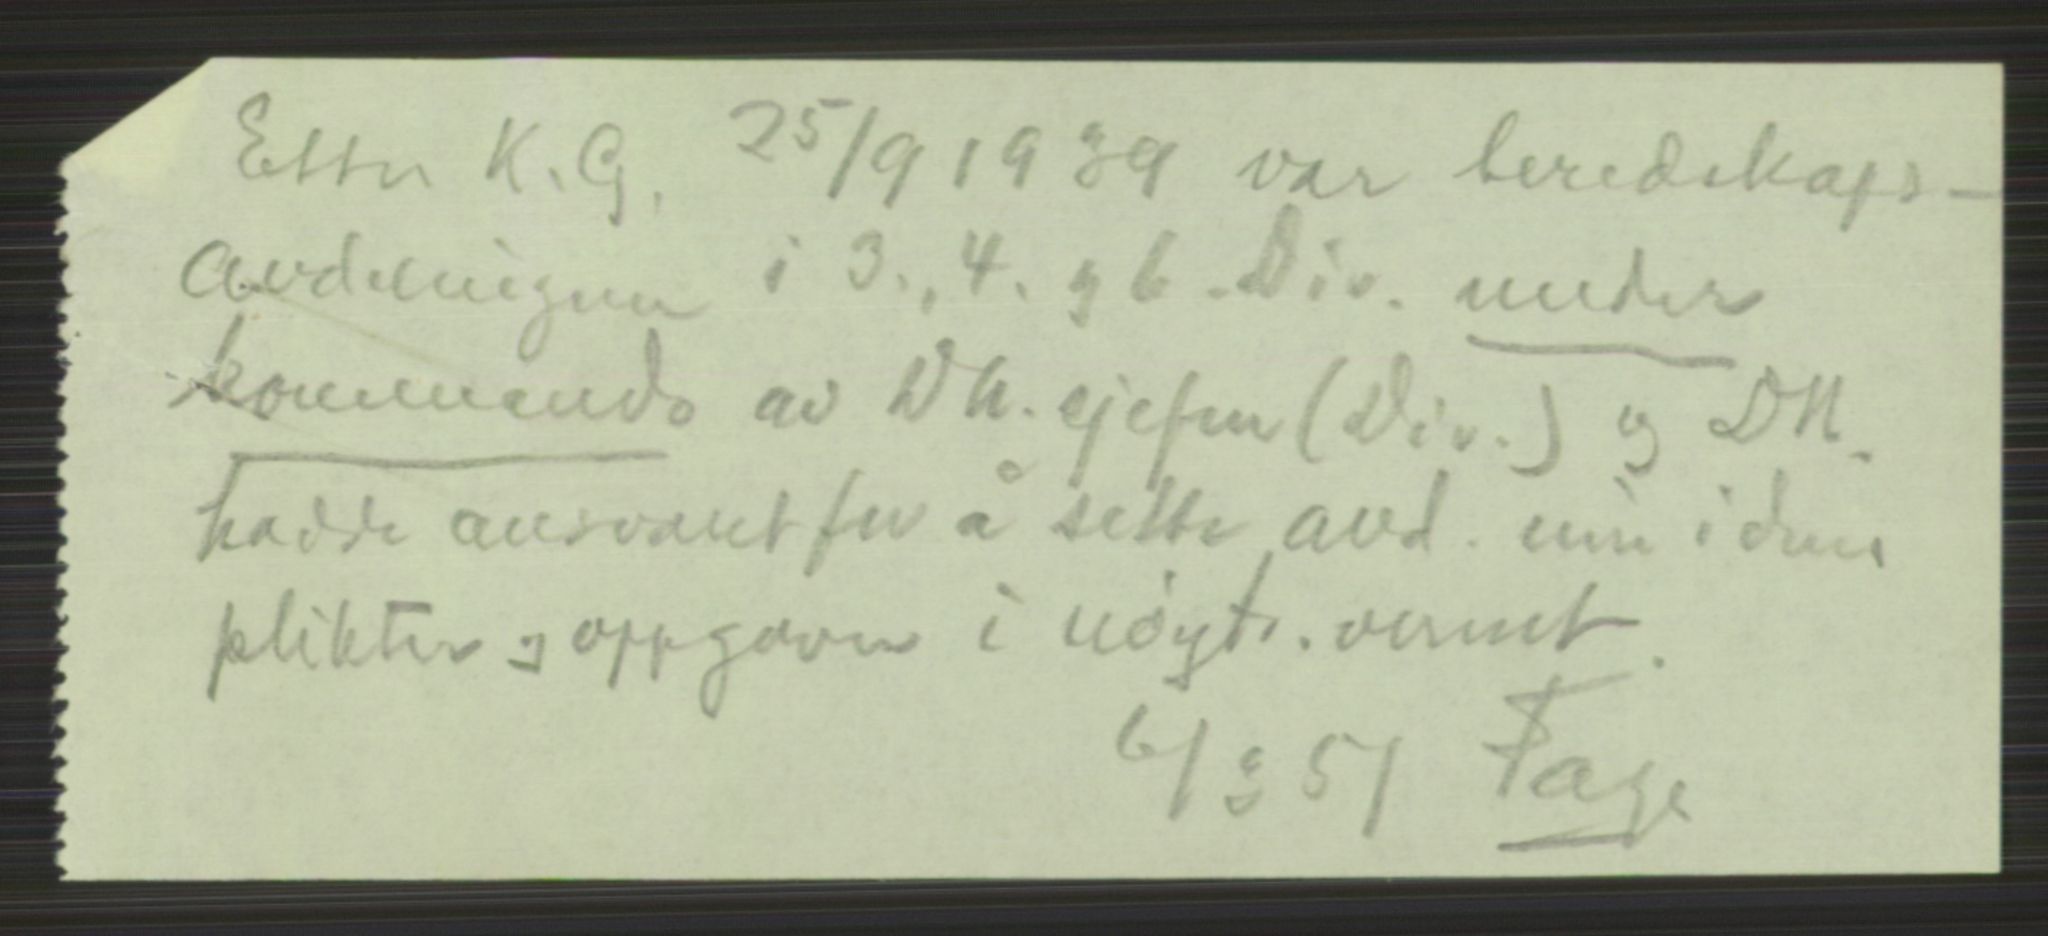 Etter K.G. 25/9 1939 var beredskaps-
avdelningene i 3., 4. og 6. Div. under
kommando av DK. sjefen (Div.) og DK.
hadde ansvaret for å sette avd. inn i deres
plikter og oppgaver i nøytr. vernet.
6/3 51